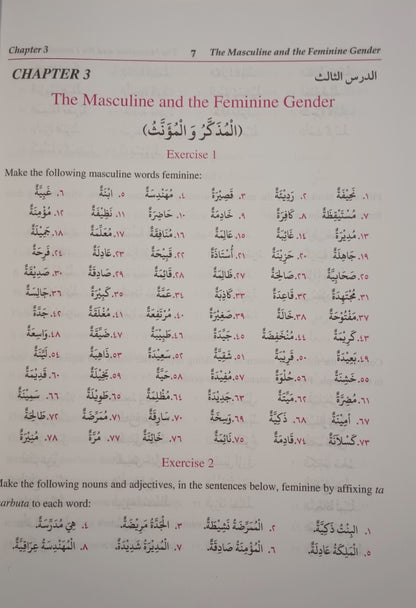 Chapter 3 7 The Masculine and the Feminine Gender
CHAPTER 3 الدرس الثالث
The Masculine and the Feminine Gender
(الْمُذَكَّرُ وَ الْمُؤَنَّثُ)
Exercise 1
Make the following masculine words feminine:
١. نَحِيْفَةٌ ٢. رَدِيْئَةٌ ٣. قَصِيْرَةٌ ٤. مُهَنْدِسَةٌ ٥. ابْنَةٌ ٦. غَبِيَّةٌ
٧. مُسْتَيْقِظَةٌ ٨. كَافِرَةٌ ٩. خَادِمَةٌ ١٠. حَاضِرَةٌ ١١. نَظِيْفَةٌ ١٢. مُؤْمِنَةٌ
١٣. مُدِيْرَةٌ ١٤. غَائِبَةٌ ١٥. عَالِمَةٌ ١٦. مُنَافِقَةٌ ١٧. مُعَلِّمَةٌ ١٨. جَمِيْلَةٌ
١٩. جَاهِلَةٌ ٢٠. حَزِيْنَةٌ ٢١. أُسْتَاذَةٌ ٢٢. قَبِيْحَةٌ ٢٣. عَادِلَةٌ ٢٤. فَرِحَةٌ
٢٥. صَحَابِيَّةٌ ٢٦. صَالِحَةٌ ٢٧. ظَالِمَةٌ ٢٨. قَائِمَةٌ ٢٩. صَادِقَةٌ ٣٠. صَدِيْقَةٌ
٣١. مُجْتَهِدَةٌ ٣٢. قَاعِدَةٌ ٣٣. كَاذِبَةٌ ٣٤. عَمَّةٌ ٣٥. كَبِيْرَةٌ ٣٦. جَالِسَةٌ
٣٧. مَفْتُوْحَةٌ ٣٨. خَالَةٌ ٣٩. صَغِيْرَةٌ ٤٠. مُرْتَفِعَةٌ ٤١. مُغْلَقَةٌ ٤٢. جَدَّةٌ
٤٣. كَرِيْمَةٌ ٤٤. مُنْخَفِضَةٌ ٤٥. جَيِّدَةٌ ٤٦. طَبِيْبَةٌ ٤٧. ضَيِّقَةٌ ٤٨. وَاسِعَةٌ
٤٩. بَعِيْدَةٌ ٥٠. قَرِيْبَةٌ ٥١. شَقِيَّةٌ ٥٢. سَعِيْدَةٌ ٥٣. ذَاهِبَةٌ ٥٤. لَيِّنَةٌ
٥٥. خَشِنَةٌ ٥٦. حُلْوَةٌ ٥٧. مُفِيْدَةٌ ٥٨. حَيَّةٌ ٥٩. بَخِيْلَةٌ ٦٠. قَدِيْمَةٌ
٦١. مُضِرَّةٌ ٦٢. مَيِّتَةٌ ٦٣. جَدِيْدَةٌ ٦٤. مُظْلِمَةٌ ٦٥. طَوِيْلَةٌ ٦٦. سَمِيْنَةٌ
٦٧. أَمِيْنَةٌ ٦٨. ذَكِيَّةٌ ٦٩. وَسِخَةٌ ٧٠. سَارِقَةٌ ٧١. مُمَرِّضَةٌ ٧٢. طَالِحَةٌ
٧٣. كَسْلَانَةٌ ٧٤. قَادِمَةٌ ٧٥. نَائِمَةٌ ٧٦. خَائِنَةٌ ٧٧. مُرَّةٌ ٧٨. مُنِيْرَةٌ
Exercise 2
Make the following nouns and adjectives, in the sentences below, feminine by affixing ta
marbuta to each word:
١. الْبِنْتُ ذَكِيَّةٌ. ٢. الْمُمَرِّضَةُ نَشِيْطَةٌ. ٣. الْجَدَّةُ مَرِيْضَةٌ. ٤. هِيَ مُدَرِّسَةٌ.
٥. الْمَلِكَةُ عَادِلَةٌ. ٦. الْمُؤْمِنَةُ صَادِقَةٌ. ٧. الْمُدِيْرَةُ شَدِيْدَةٌ. ٨. الْمُهَنْدِسَةُ عِرَاقِيَّةٌ.